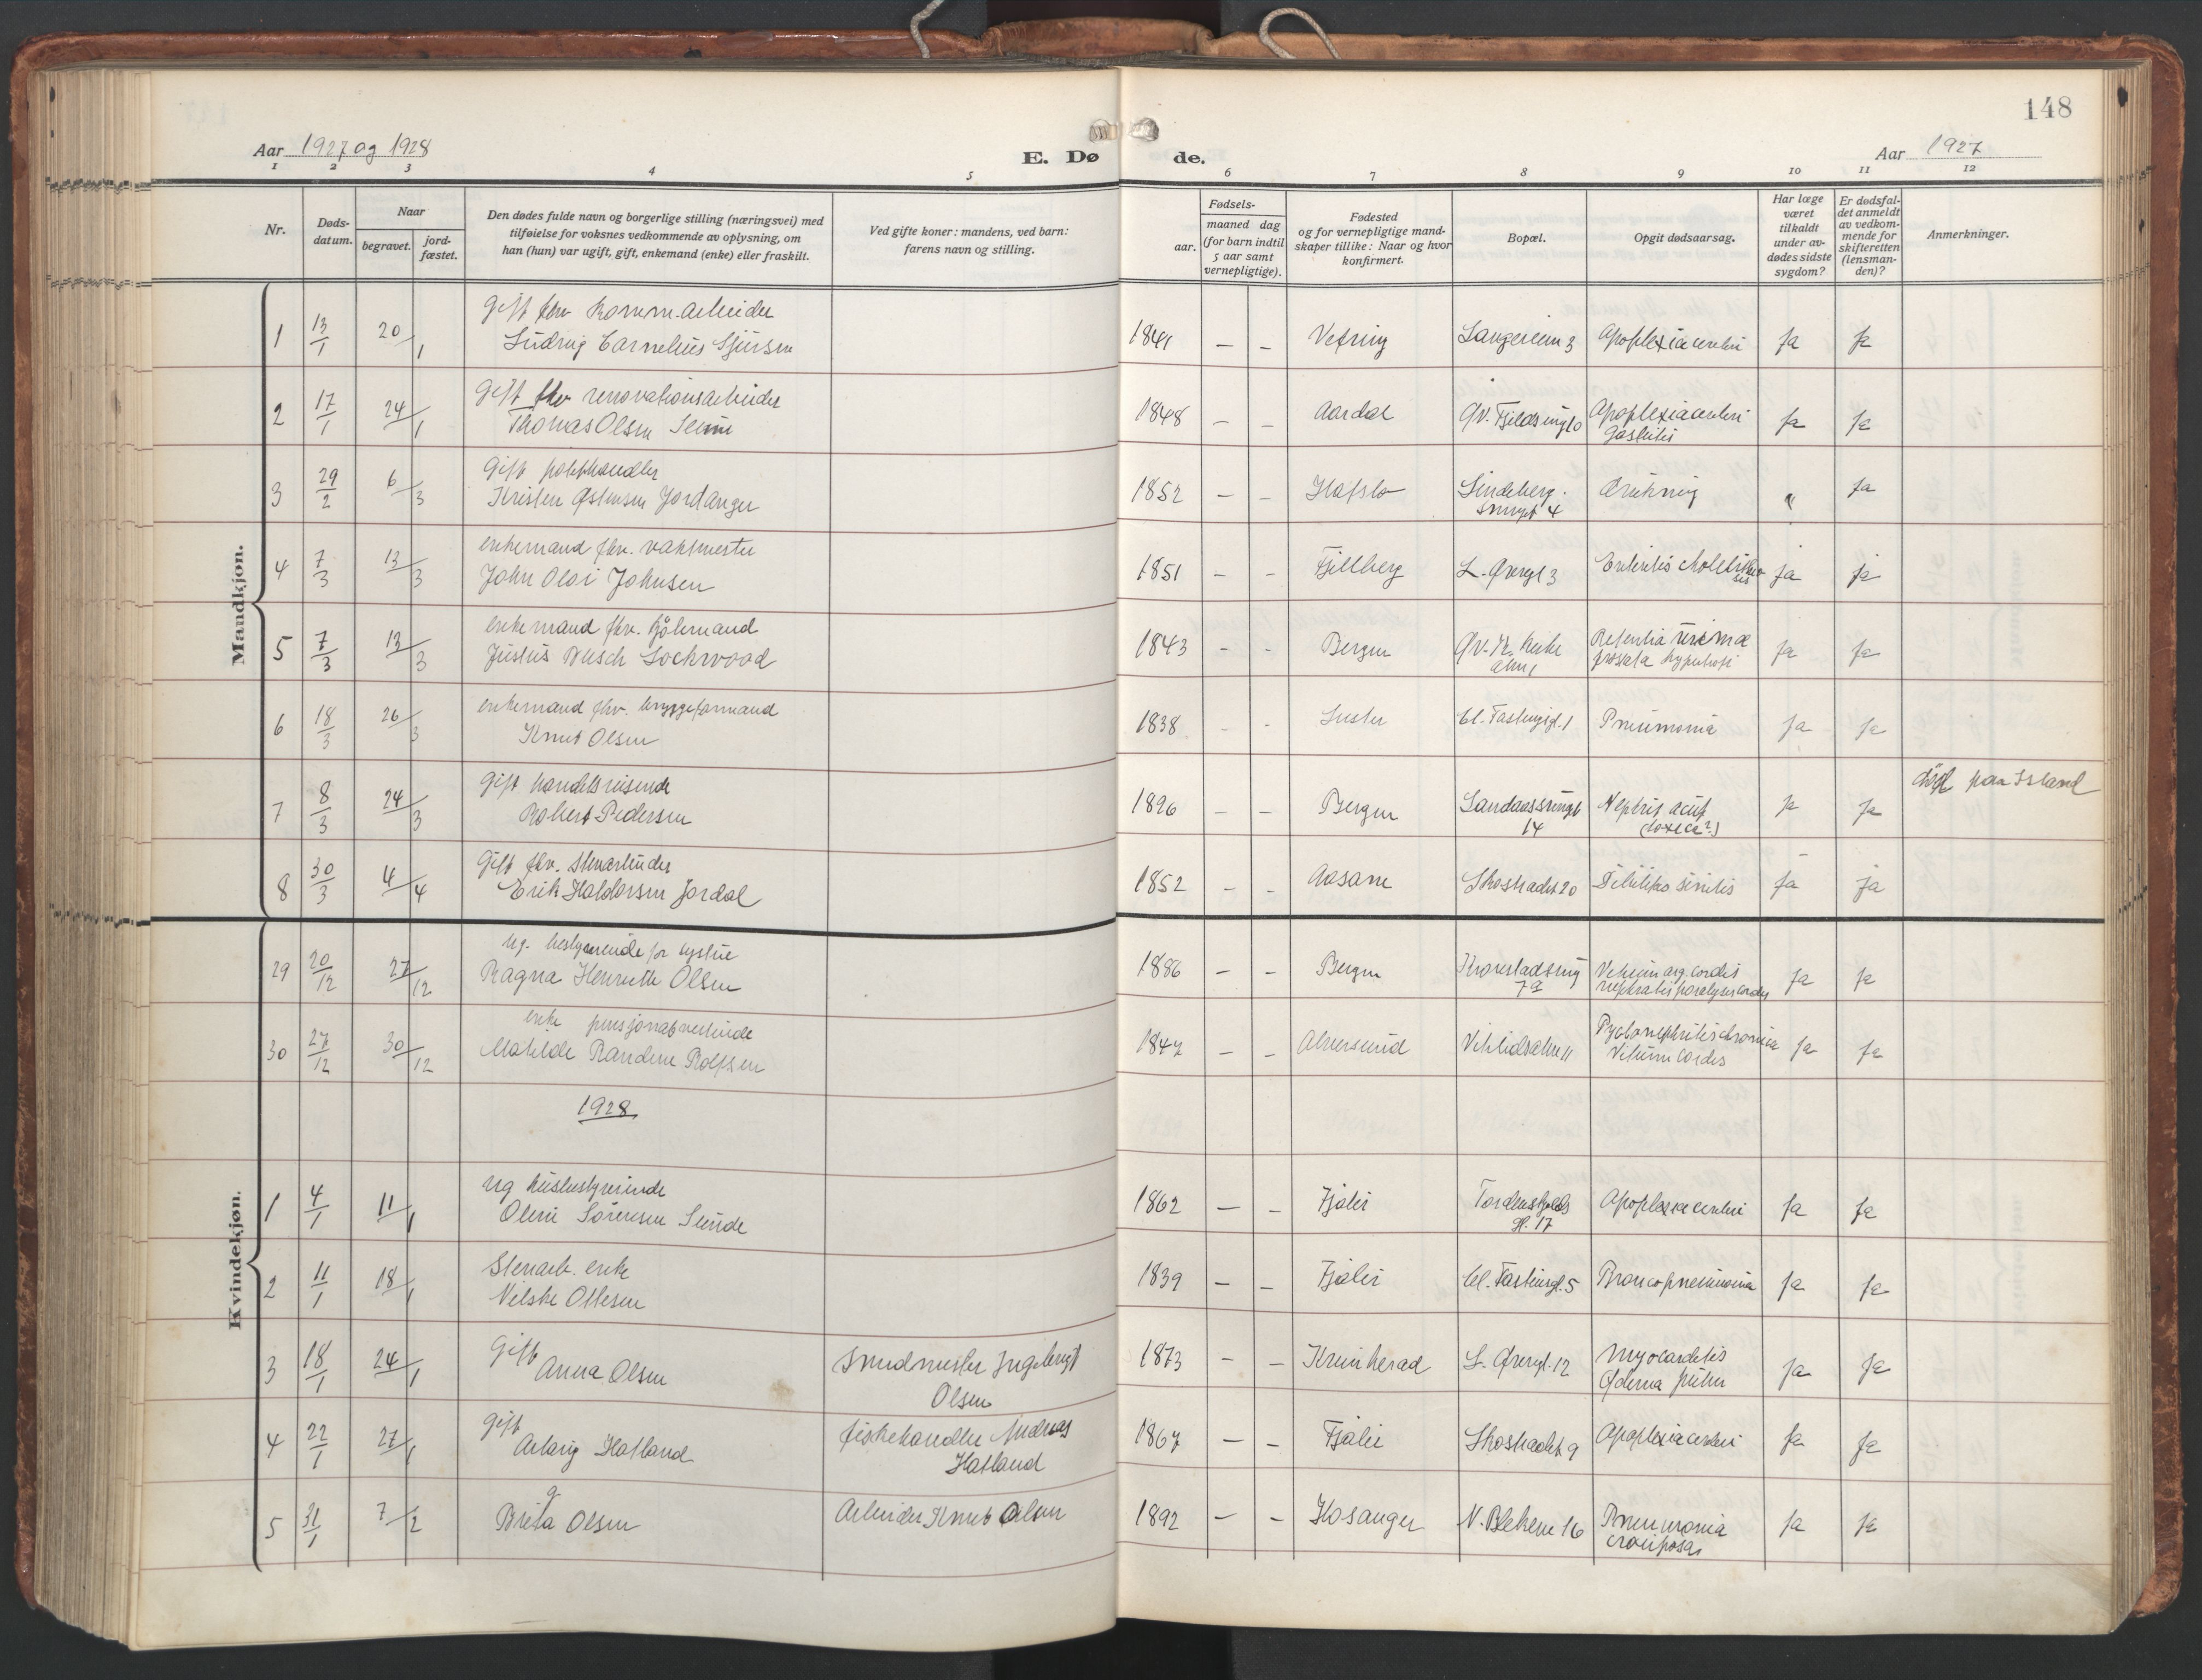 148
Aar 1927 og 1928
E. Dø de.
Aar 1927
1 2 3 4 5 6 7 8 9 10 11 12
Nr.
Døds-
datum.
Naar
begravet.
jord-
fæstet.
Den dødes fulde navn og borgerlige stilling (næringsvei) med
tilføielse for voksnes vedkommende av oplysning, om
han (hun) var ugift, gift, enkemand (enke) eller fraskilt.
Ved gifte koner: mandens, ved barn:
farens navn og stilling.
Fødsels-
aar.
maaned dag
(for barn indtil
5 aar samt
vernepligtige).
Fødested
og for vernepligtige mand-
skaper tillike: Naar og hvor
konfirmert.
Bopæl.
Opgit dødsaarsag.
Har læge
været
tilkaldt
under av-
dødes sidste
sygdom?
Er dødsfal-
det anmeldt
av vedkom-
mende for
skifteretten
(lensman-
den)?
Anmerkninger.
Mandkjøn.
Gift fhv Komm. arbeider
1 13/1 20/1 Ludvig Cornelius Sjursen 1841 – – Langeveien 3 Apoplexia cerebri Ja Ja
Gift fhv renovationsarbeider
2 17/1 24/1 Thomas Olsen 1848 – – Aardal Apoplexia cerebri Ja Ja
Gift
3 29/2 6/3 Kristen Østensen Jordanger 1852 – – Hafslo Lindeberg- Drukning " Ja
smuget 4
enkemand fhv. vaktmester
4 7/3 13/3 John Johnsen 1851 – – L. Øvregt 3 Enteritis ja ja
enkemand fhv.
5 7/3 13/3 Justus Busch Lockwood 1843 – – Bergen Ja Ja
enkemand fhv. bryggeformand
6 18/3 26/3 Knut Olsen 1838 – – Luster Pneumonia Ja Ja
Gift handelsreisende
7 8/3 24/3 Robert Pedersen 1896 – – Bergen Landaassvingt Ja Ja død paa Island
14 (toxica?)
Gift fhv. stenarbeider
8 30/3 4/4 Erik Haldorsen Jordal 1852 – – Aasane Skostradet 20 Ja ja
Kvindekjøn.
ug. bestyrerinde for systue
29 20/12 27/12 Ragna Henriette Olsen 1886 – – Bergen Ja Ja
7a
enke pensjonatvertinde
30 27/12 30/12 Matilde Randine Rolfsen 1847 – – Alversund Ja Ja
Vitium cordis
1928
ug husbestyrerinde
1 4/1 11/1 Oline Sørensen Sunde 1862 – – Fjaler Tordenskjolds Apoplexia cerebri Ja Ja
gt. 17
Stenarb. enke
2 11/1 18/1 Ottesen 1839 – – Fjaler Broncopneumonia Ja Ja
Gift
3 18/1 24/1 Anna Olsen Smedmester Ingebrigt 1873 – – Kvinherad L. Øvregt. 12 Myocarditis Ja Ja
Olsen
gift
4 22/1 27/1 Hatland fiskehandler Andreas 1867 – – Fjaler Skostradet 9 Apoplexia cerebri Ja Ja
Hatland
g
5 31/1 7/2 Brita Olsen Arbeider Knut Olsen 1892 – – Hosanger N. Blekevei 16 Pneumonia Ja Ja
crouposa